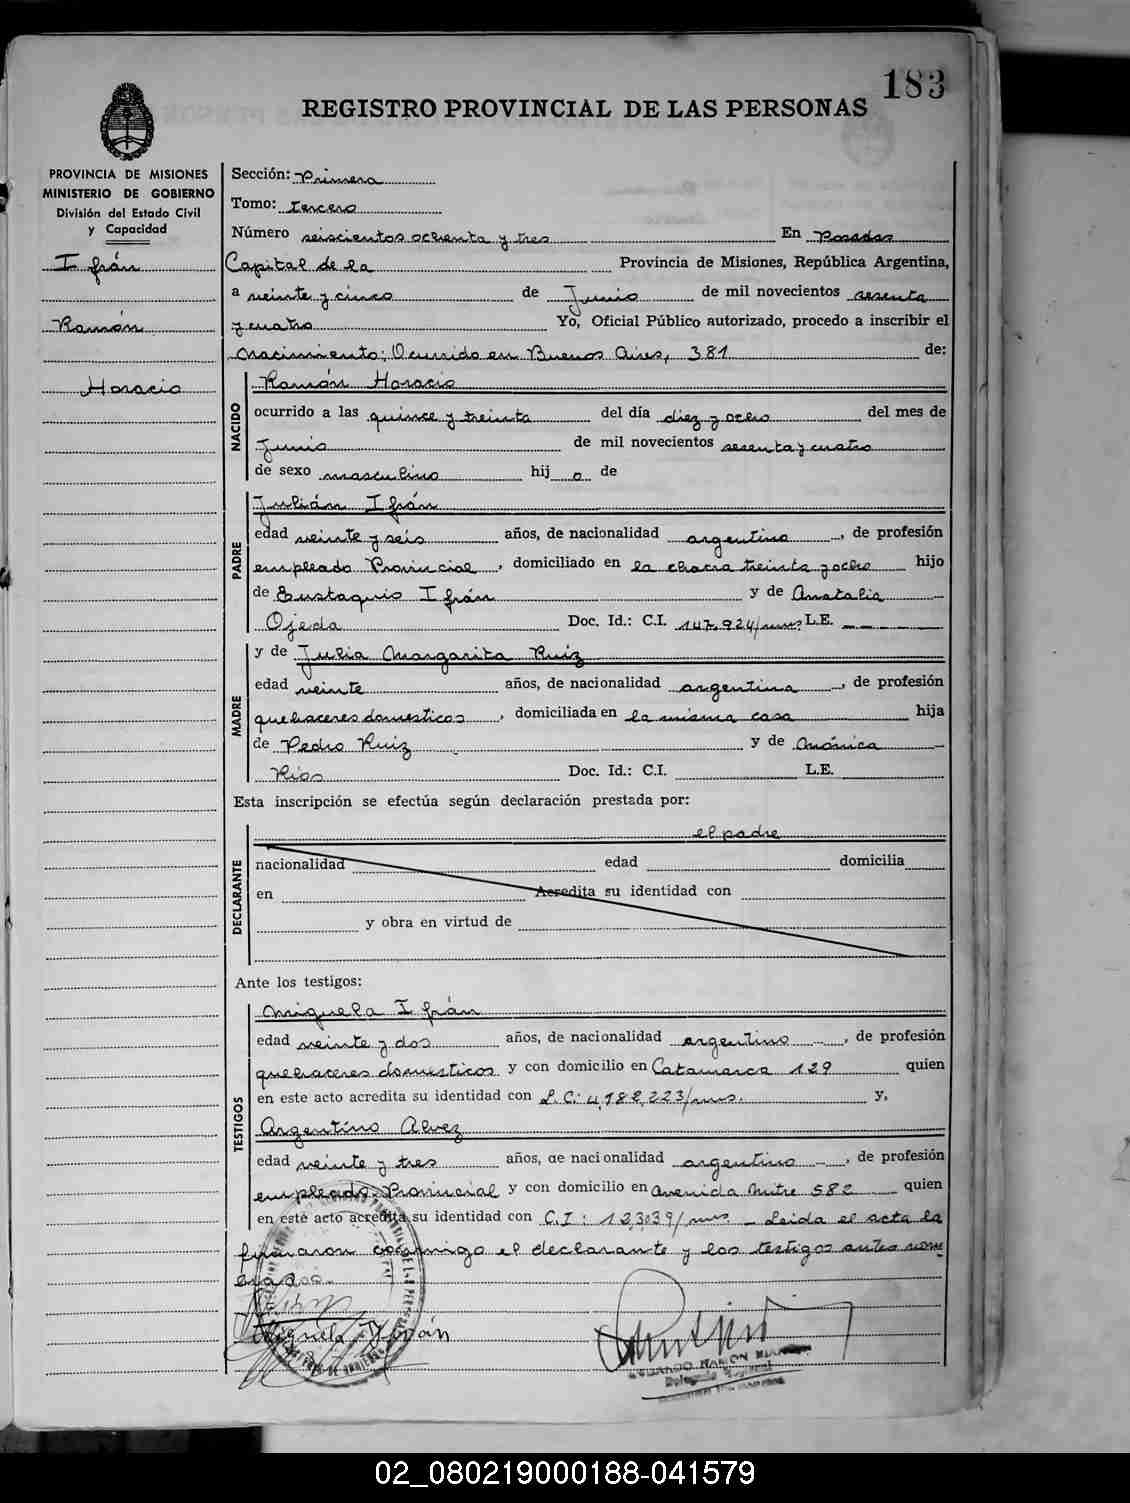 183
REGISTRO PROVINCIAL DE LAS PERSONAS
PROVINCIA DE MISIONES
MINISTERIO DE GOBIERNO
División del Estado Civil
y Capacidad
Ifrán
Ramón
Horacio
Sección: Primera
Tomo: Tercero
Número seiscientos ochenta y tres En Posadas
Capital de la Provincia de Misiones, República Argentina,
a veinte y cinco de Junio de mil novecientos sesenta
y cuatro Yo, Oficial Público autorizado, procedo a inscribir el
nacimiento: Ocurrido en Buenos Aires, 381 de:
NACIDO
Ramón Horacio
ocurrido a las quince y treinta del día diez y ocho del mes de
Junio de mil novecientos sesenta y cuatro
de sexo masculino hij o de
PADRE
Julián Ifrán
edad veinte y seis años, de nacionalidad argentino, de profesión
empleado Provincial, domiciliado en la chacra treinta y ocho hijo
de Eustaquio Ifrán y de Anatalia
Ojeda Doc. Id.: C.I. 147.924/mns? L.E.
MADRE
y de Julia Margarita Ruiz
edad veinte años, de nacionalidad argentina, de profesión
quehaceres domesticos, domiciliada en la misma casa hija
de Pedro Ruiz y de Mónica
Rios Doc. Id.: C.I. L.E.
Esta inscripción se efectúa según declaración prestada por:
DECLARANTE
el padre
nacionalidad edad domicilia
en Acredita su identidad con
y obra en virtud de
Ante los testigos:
TESTIGOS
Miguela Ifrán
edad veinte y dos años, de nacionalidad argentino, de profesión
quehaceres domesticos y con domicilio en Catamarca 129 quien
en este acto acredita su identidad con L.C: 4,188,223/mns. y,
Argentino Alvez
edad veinte y tres años, de nacionalidad argentino, de profesión
empleado Provincial y con domicilio en Avenida Mitre 582 quien
en este acto acredita su identidad con C.I: 123,039/mns - Leida el acta la
firmaron conmigo el declarante y los testigos antes nom
brados.
Miguela Ifrán
RAMON
Delegado
02_080219000188-041579